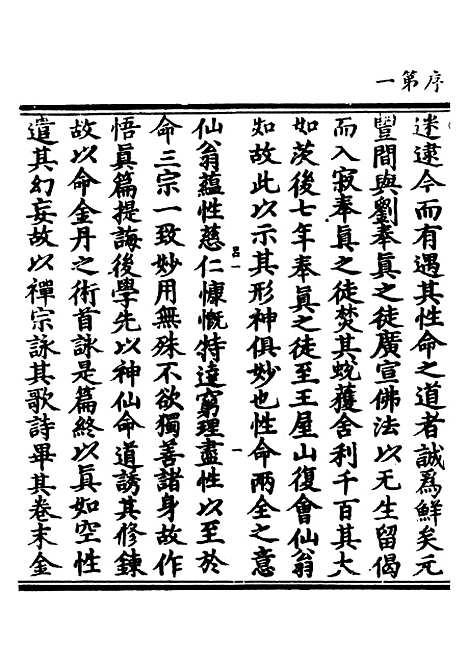 序第一
迷逮今而有遇其性命之道者誠爲鮮矣元
豐間與劉奉真之徒廣宣佛法以无生留偈
而入寂奉真之徒焚其蛻獲舍利千百其大
如茨後七年奉真之徒至王屋山復會仙翁
如故此以示其形神俱妙也性命兩全之意
仙翁蘊性慈仁慷慨特達窮理盡性以至於
命三宗一致妙用無殊不欲獨善諸身故作
悟真篇提誨後學先以神仙命道誘其修鍊
故以命金丹之術首詠是篇終以真如空性
遣其幻妄故以禪宗詠其歌詩畢其卷末金